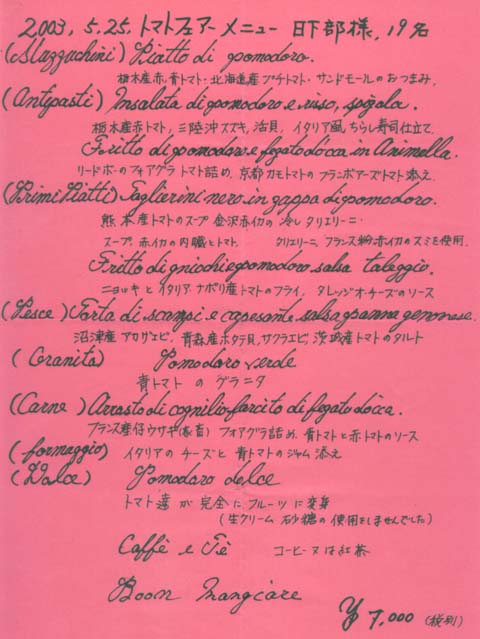 2003, 5.25. トマトフェアーメニュー 日下部様, 19名
(Stuzzuchini) Piatto di pomodoro.
栃木産赤,青トマト・北海道産プチトマト・サンドモールのおつまみ,
(Antipasti) Insalata di pomodoro e riso, spigola.
栃木産赤トマト, 三陸沖スズキ, 活貝, イタリア風ちらし寿司仕立て,
Fritto di pomodoro e fegato d'oca in Animella.
リードボーのフォアグラトマト詰め, 京都カモトマトのフランボアーズトマト添え
(Primi Piatti) Taglierini nero in zappa di pomodoro.
熊本産トマトのスープ 金沢赤イカの冷しタリエリーニ・
スープ,赤イカの内臓とトマト, タリエリーニ, フランス粉,赤イカのスミを使用.
Fritto di gniochi e pomodoro salsa taleggio.
ニョッキとイタリア,ナポリ産トマトのフライ, タレッジオ・チーズのソース
(Pesce) Torta di scampi e capesante, salsa panna genovese.
沼津産アカザエビ, 青森産ホタテ貝,サクラエビ, 茨城産トマトのタルト
(Granita) Pomodoro verde
青トマト の グラニタ
(Carne) Arrosto di cogniglio farcito di fegato d'oca.
フランス産仔ウサギ(家畜) フォアグラ詰め, 青トマトと赤トマトのソース
(formaggio) イタリアの チーズと 青トマトのジャム添え
(Dolce) Pomodoro dolce
トマト達が完全にフルーツに変身
(生クリーム 砂糖の使用をしませんでした)
Caffè e Tè コーヒー又は紅茶
Boon Mangiare
¥7,000 (税別)